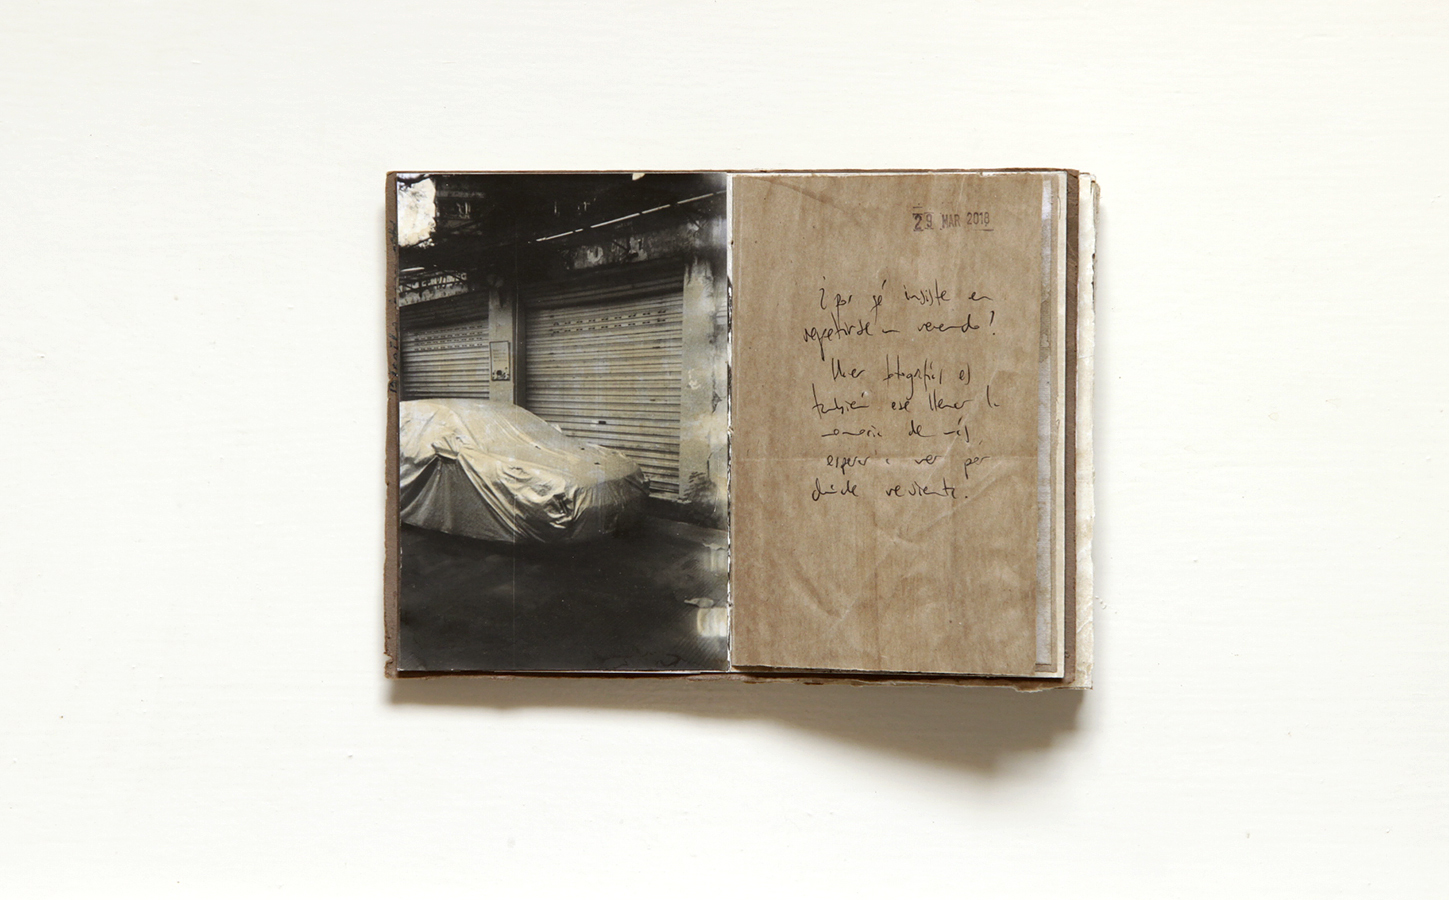 29 MAR 2018
¿por qé insiste en
repetirse un recuerdo?
Hacer fotografías es
también ese llenar la
memoria de más
esperar a ver por
dónde revienta.